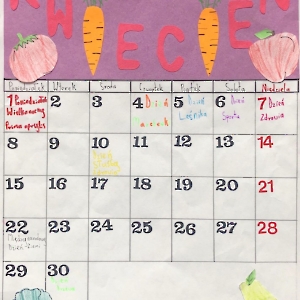 KWIECIEŃ
Poniedziałek Wtorek Środa Czwartek Piątek Sobota Niedziela
1 Poniedziałek Wielkanocny Prima aprylis
2
3
4 Dzień
5 Dzień
6 Dzień Sportu
7 Dzień Zdrowia
8 9 10 11 12 13 14
15 16 17 18 19 20 21
22 Dzień Ziemi
23 24 25 26 27 28
29 30